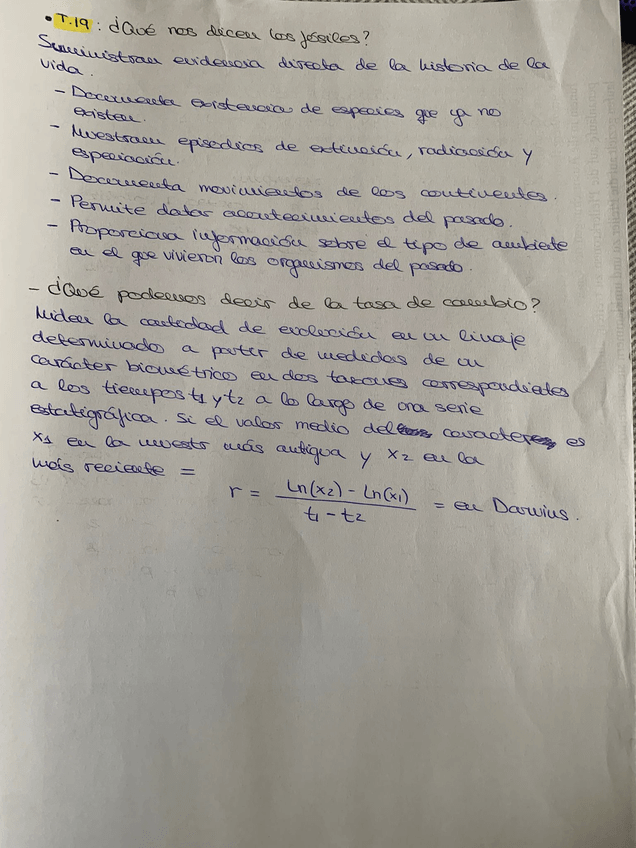 • T.19: ¿Qué nos dicen los fósiles?
Suministran evidencia directa de la historia de la
vida.
- Documenta existencia de especies que ya no
existen.
- Muestran episodios de extinción, radiación y
especiación.
- Documenta movimientos de los continentes.
- Permite datar acontecimientos del pasado.
- Proporciona información sobre el tipo de ambiente
en el que vivieron los organismos del pasado.
- ¿Qué podemos decir de la tasa de cambio?
Miden la cantidad de evolución en un linaje
determinado a partir de medidas de un
carácter biométrico en dos taxones correspondientes
a los tiempos t1 y t2 a lo largo de una serie
estatigráfica. Si el valor medio del caracter es
x1 en la muestr más antigua y x2 en la
más reciente =
r = Ln(x2) - Ln(x1) / t1 - t2 = en Darwius.